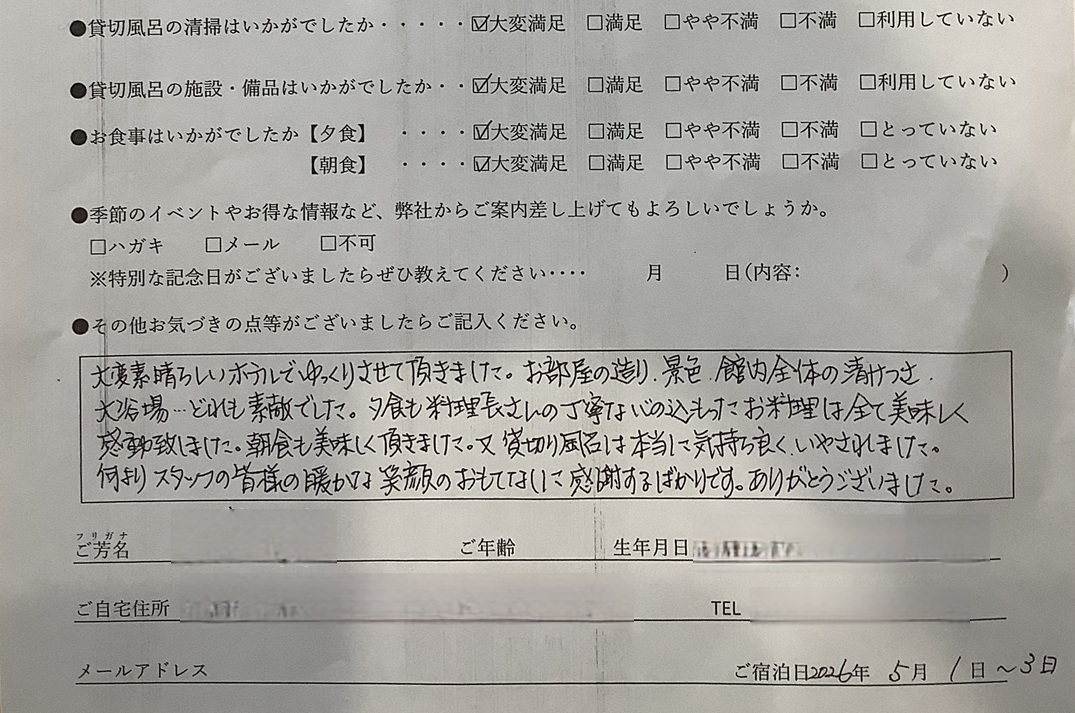 ●貸切風呂の清掃はいかがでしたか・・・・・☑大変満足 □満足 □やや不満 □不満 □利用していない
●貸切風呂の施設・備品はいかがでしたか・・☑大変満足 □満足 □やや不満 □不満 □利用していない
●お食事はいかがでしたか【夕食】 ・・・・☑大変満足 □満足 □やや不満 □不満 □とっていない
【朝食】 ・・・・☑大変満足 □満足 □やや不満 □不満 □とっていない
●季節のイベントやお得な情報など、弊社からご案内差し上げてもよろしいでしょうか。
□ハガキ □メール □不可
※特別な記念日がございましたらぜひ教えてください‥‥ 月 日(内容: )
●その他お気づきの点等がございましたらご記入ください。
大変素晴らしいホテルでゆっくりさせて頂きました。お部屋の造り、景色、館内全体の清けつさ、
大浴場…どれも素敵でした。夕食も料理長さんの丁寧な心の込もったお料理は全て美味しく
感動致しました。朝食も美味しく頂きました。又 貸切り風呂は本当に気持ち良く、いやされました。
何より スタッフの皆様の暖かな 笑顔の おもてなしに 感謝するばかりです。ありがとうございました。
フリガナ
ご芳名 ご年齢 生年月日
ご自宅住所 TEL
メールアドレス ご宿泊日2026年 5月 1日 〜3日